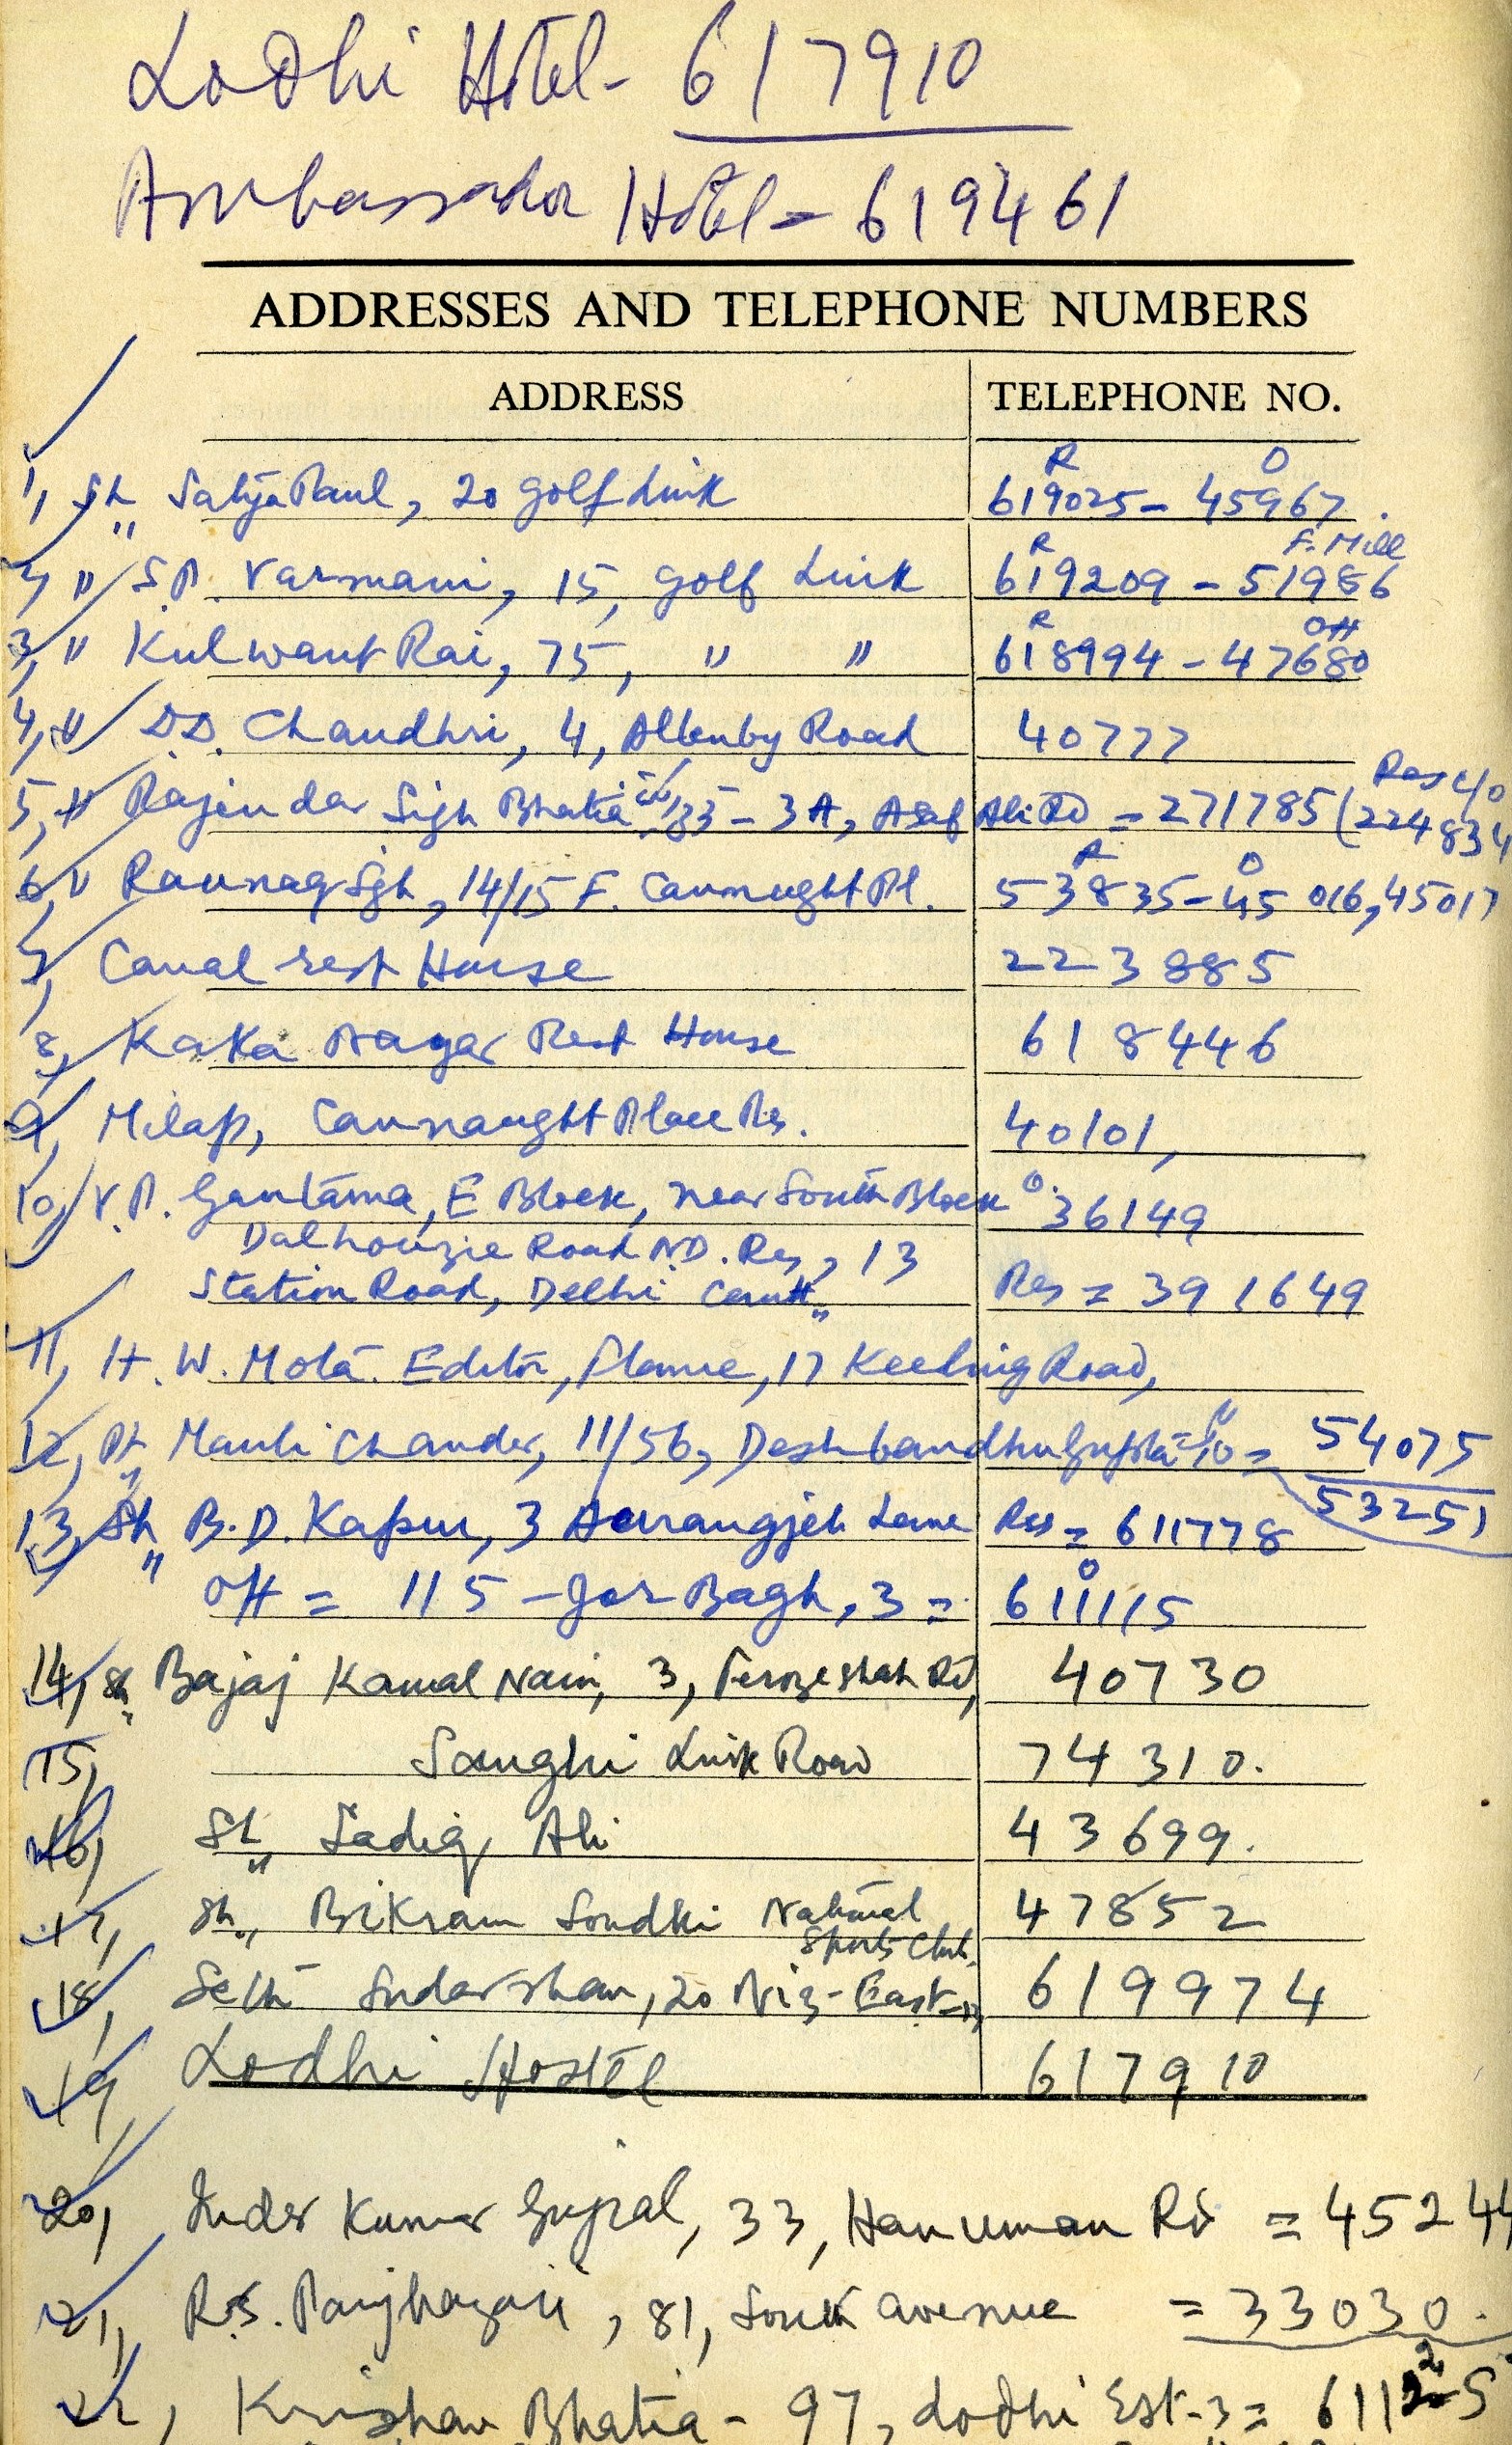 Lodhi Hotel - 617910
Ambassador Hotel - 619461
ADDRESSES AND TELEPHONE NUMBERS
ADDRESS TELEPHONE NO.
R O
1, Sh Satya Paul, 20 Golf Link 619025 - 45967
R F. Mill
2, " S.P. Varmani, 15, Golf Link 619209 - 51986
R Off
3, " Kulwant Rai, 75, " " 618994 - 47680
4, " D.D. Chaudhri, 4, Allenby Road 40777
Res c/o
5, " Rajindar Sigh Bhatia 3 - 3A, Asaf Ali Rd = 271785 (224834
R O
6, " Raunaq Sgh, 14/15 F. Connaught Pl. 53835 - 45016, 45017
7, Canal rest House 223885
8, Kaka Nagar Rest House 618446
9, Milap, Connaught Place Res. 40101,
10, V.P. Gautama, E Block, near South Block O. 36149
Dalhouzie Road N.D. Res, 13
Station Road, Delhi Cantt, Res = 391649
11, H.W. Mota. Editor, Flame, 17 Keeling Road,
12, Pt Mauli Chander, 11/56, Deshbandhu Gupta = 54075
53251
13, Sh B.D. Kapur, 3 Aurangjeb Lane Res = 611778
O
Off = 115 - Jor Bagh, 3 = 611115
14, Sh Bajaj Kamal Nain, 3, Ferozeshah Rd, 40730
15, Sanghi Link Road 74310.
16, Sh Sadiq Ali 43699.
17, Sh, Bikram Sondhi National 47852
Sports Club,
18, Seth Sudarshan, 20 Niz - East - 13, 619974
19, Lodhi Hostel 617910
20, Inder Kumar Gujral, 33, Hanuman Rd = 45244
21, R.S. Panjhazari, 81, South avenue = 33030.
22, Krishan Bhatia - 97, Lodhi Est. - 3 =